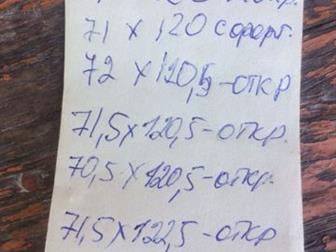 71 x 120 с форт.
72 x 120,5-откр
71,5x120,5-откр.
70,5 x120,5-откр.
71,5x122,5-откр